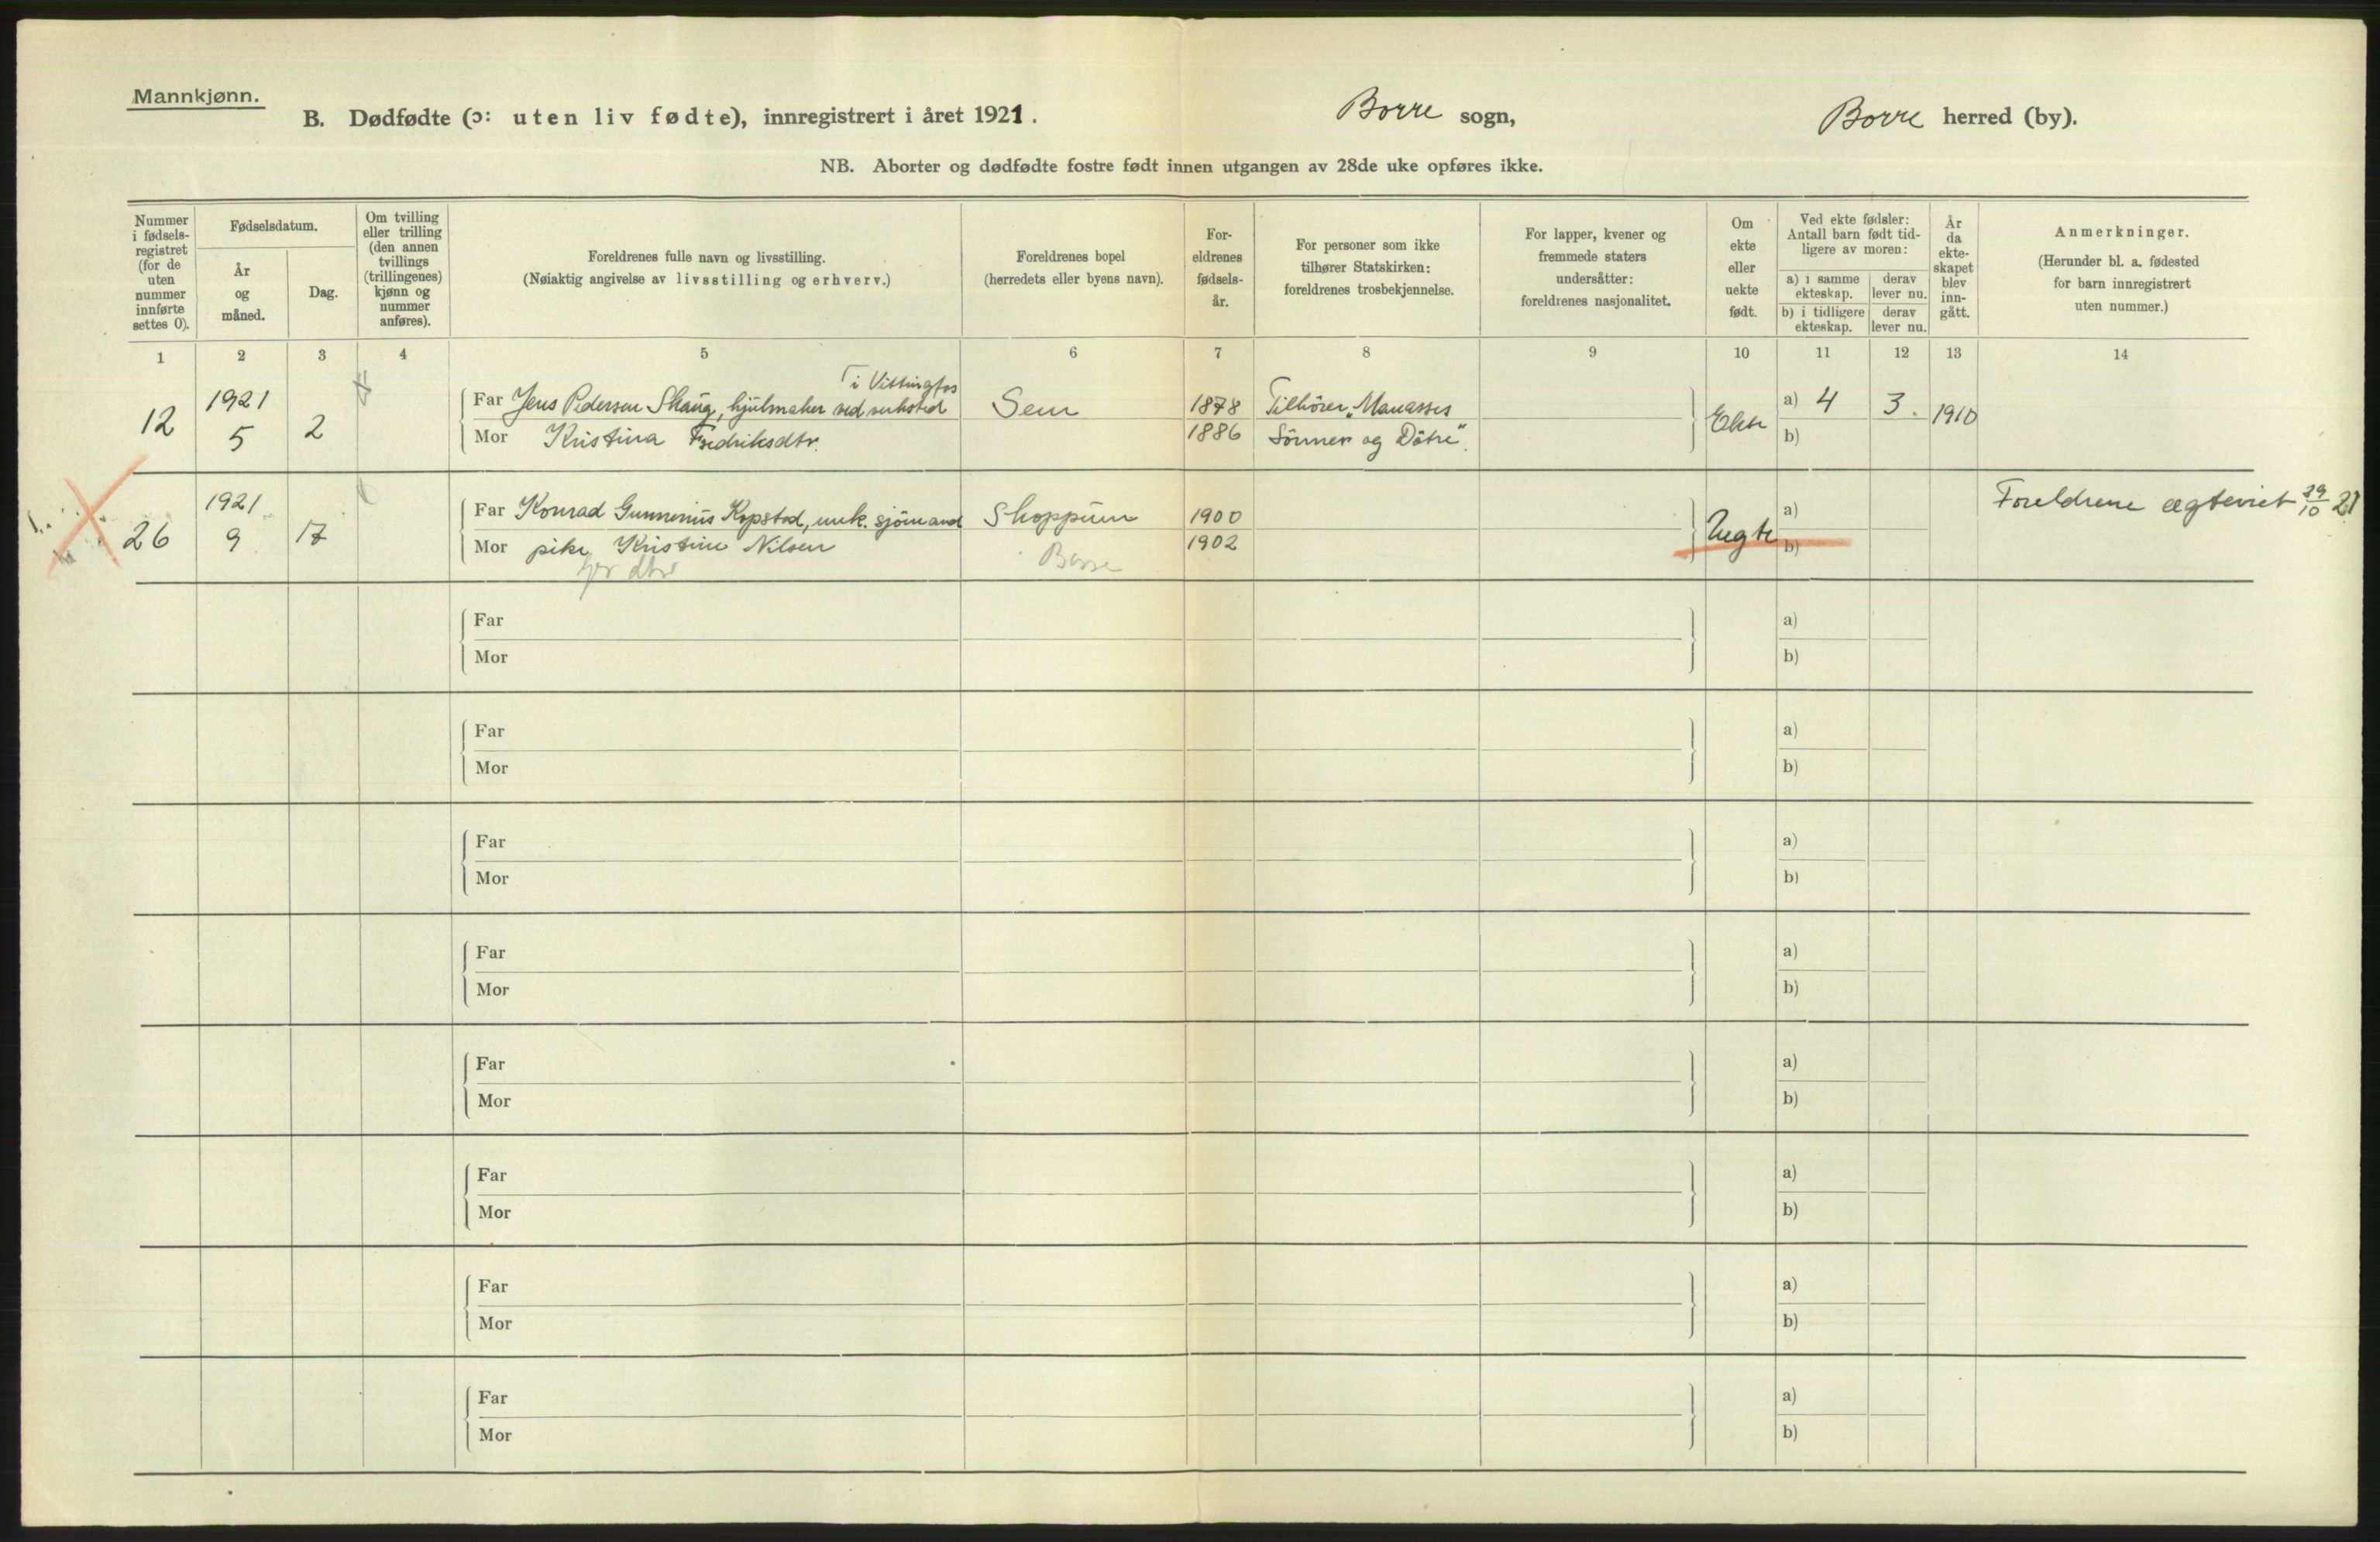 Mannkjønn.
B. Dødfødte (ɔ: uten liv fødte), innregistrert i året 1921.
Borre sogn,
Borre herred (by).
NB. Aborter og dødfødte fostre født innen utgangen av 28de uke opføres ikke.
Nummer
i fødsels-
registret
(for de
uten
nummer
innførte
settes 0).
Fødselsdatum.
År
og
måned.
Dag.
Om tvilling
eller trilling
(den annen
tvillings
(trillingenes)
kjønn og
nummer
anføres).
Foreldrenes fulle navn og livsstilling.
(Nøiaktig angivelse av livsstilling og erhverv.)
Foreldrenes bopel
(herredets eller byens navn).
For-
eldrenes
fødsels-
år.
For personer som ikke
tilhører Statskirken:
foreldrenes trosbekjennelse.
For lapper, kvener og
fremmede staters
undersåtter:
foreldrenes nasjonalitet.
Om
ekte
eller
uekte
født.
Ved ekte fødsler:
Antall barn født tid-
ligere av moren:
a) i samme
ekteskap.
derav
lever nu.
b) i tidligere
ekteskap.
derav
lever nu.
År
da
ekte-
skapet
blev
inn-
gått.
Anmerkninger.
(Herunder bl. a. fødested
for barn innregistrert
uten nummer.)
1 2 3 4 5 6 7 8 9 10 11 12 13 14
12
1921
5
2
i Vittingfos
Far Jens Pedersen Skaug, hjulmaker ved verksted
Mor Kristina Fredriksdtr.
Sem
1878
1886
Tilhører „Manasses
Sönner og Døtre".
Ekte
a) 4 3. 1910
b)
26
1921
9
17
Far Konrad Gunnerius Kopstad, unk. sjömand
Mor pike Kristine Nilsen
dtr
Skoppum
Borre
1900
1902
Uegte
a)
b)
Foreldrene ægteviet 29/10 21
Far
Mor
a)
b)
Far
Mor
a)
b)
Far
Mor
a)
b)
Far
Mor
a)
b)
Far
Mor
a)
b)
Far
Mor
a)
b)
Far
Mor
a)
b)
Far
Mor
a)
b)